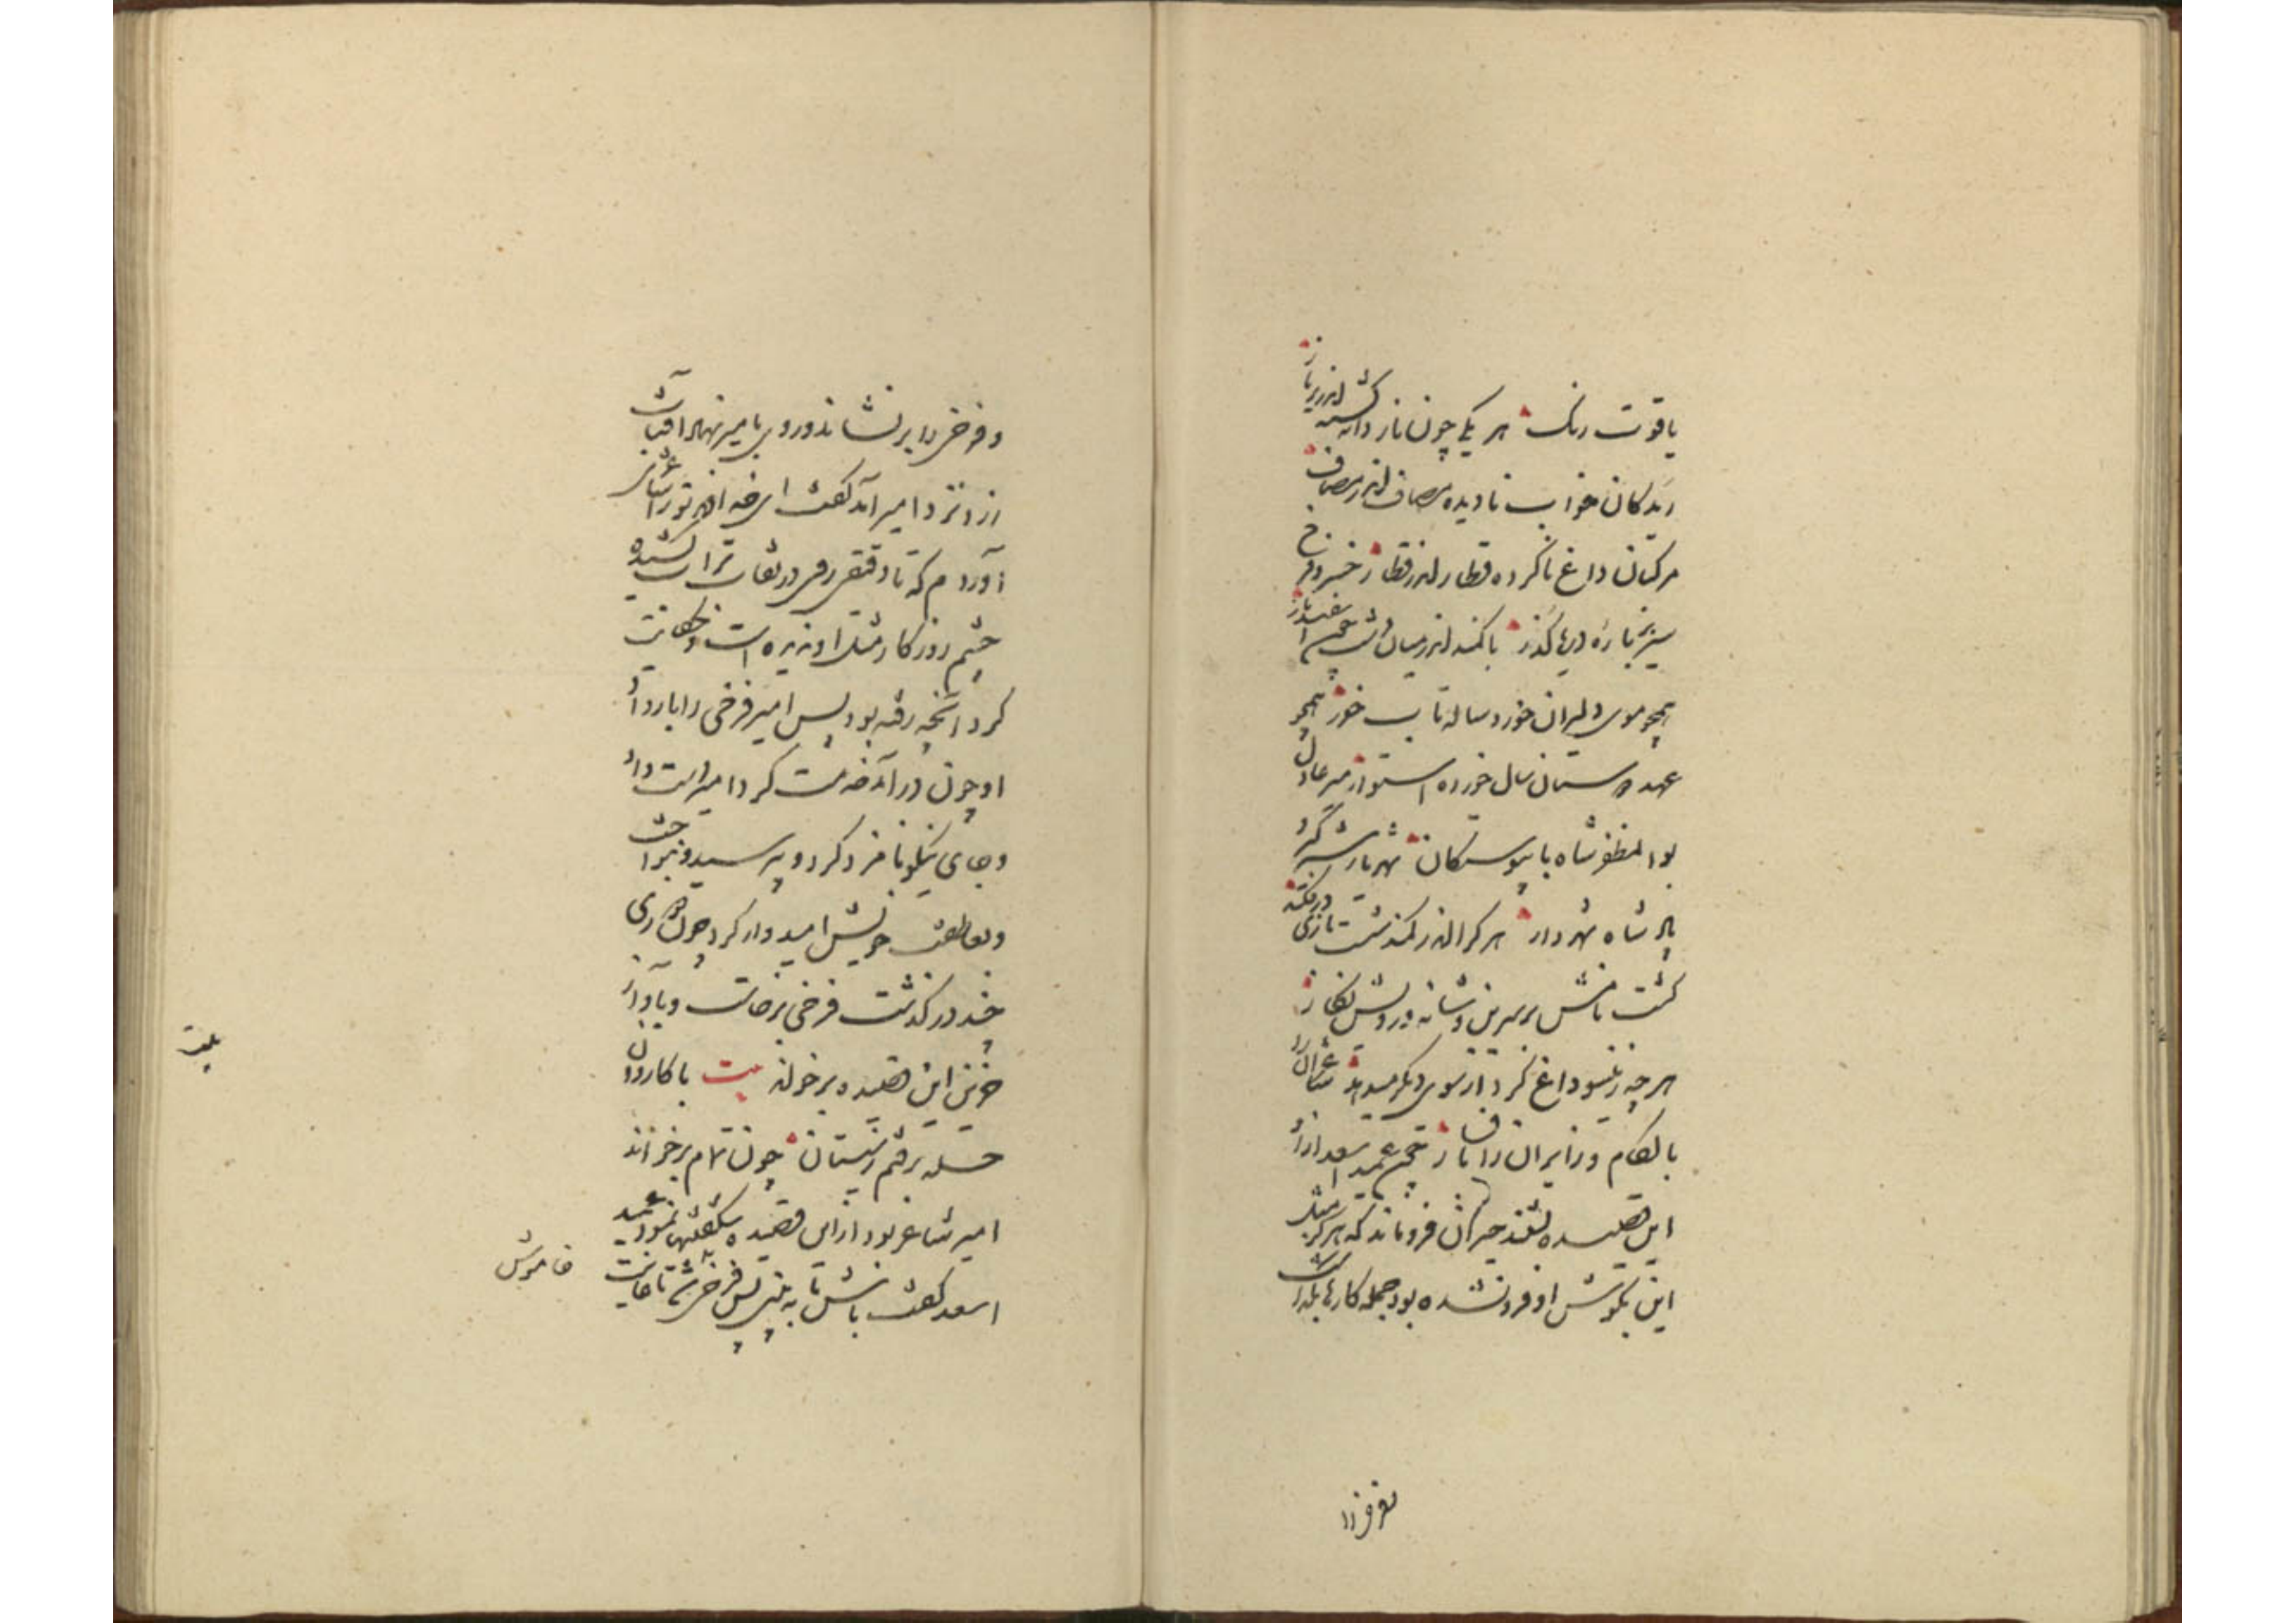 یاقوت رنک هر یکی چون نار دانه کشته اندر زیر نار
ریدکان خواب نادیده مصاف اندر مصاف
مرکبان داغ ناکرده قطار اندر قطار خسرو فرخ
سیر بر باره دریا گذر با کمند اندر میان دشت چون اسفندیار
همچو موی دلبران خورد ساله تاب خورد همچو
عهد دوستان سال خورده استوار میر عادل
بوالمظفر شاه با پیوستکان شهریار شیر گیر
پادشاه شهردار هر کرا اندر کمند شست یازی درفکند
کشت نامش بر سرین و شانه و رویش نکار
هر چه زینسو داغ کرد از سوی دیکر میدهد شاعران را
بالکام و زایران را با فسار چون عمید اسعد از او
این قصیده بشنید حیران فروماند که هرکز مثل
این بکوش او فرو نشده بود جمله کارها بگذاشت
و فرخی را برنشاند و روی بامیر نهاد آفتاب
زرد نزد امیر آمد گفت ای خداوند ترا شاعری
آورده ام که تا دقیقی روی در نقاب تراب کشیده
چشم روزکار مثل او ندیده است و حکایت
کرد آنچه رفته بود پس امیر فرخی را بار داد
او چون درآمد خدمت کرد امیر دست داد
و جای نیکو نامزد کرد و پرسید و نواخت
و بعاطفت خویش امیدوار کرد چون دوری
چند در گذشت فرخی برخاست و باواز
حزین این قصیده برخواند بیت با کاروان
حله برفتم ز سیستان چون تمام برخواند
امیر شاعر بود ازین قصیده شکفتیها نمود عمید
اسعد گفت باش تا به بینی پس فرخی
خاموش